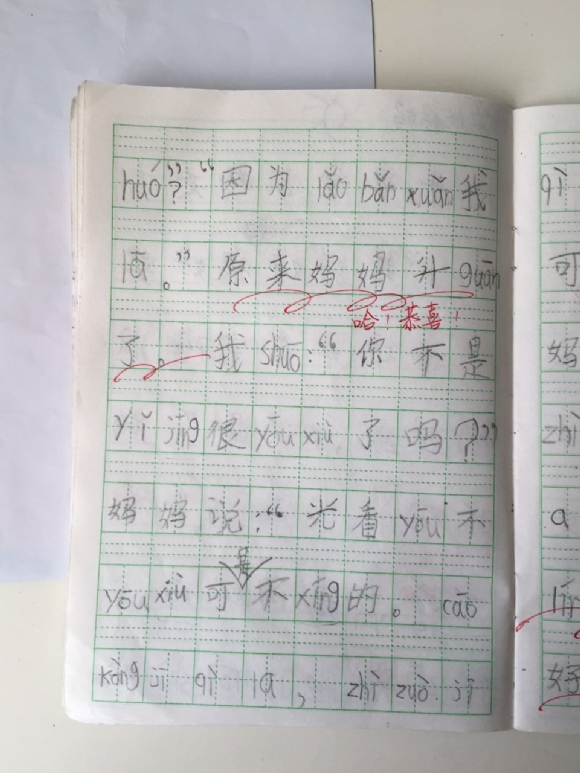 huó？”“因为lǎo bǎn xuǎn我
lā。”原来妈妈升guān
哈！恭喜！
了。我shuō：“你不是
yǐ jīng很yōu xiù了吗？”
妈妈说：“光看yōu不
是
yōu xiù可不xíng的。cāo
kòng jī qì la，zhì zuò jī
qì
可
妈
zhì
a
lín
好